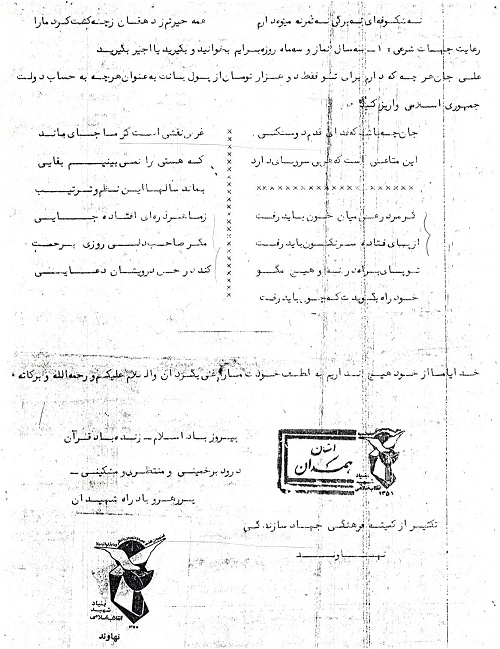 نه شکوفه‌ای نه برگی نه ثمر نه سایه دارم    همه حیرتم که دهقان زچه کشت کرد مارا
رعایت جهات شرعی : ۱ – سه سال نماز و سه ماه روزه برایم بخوانید و بگیرید یا اجیر بگیرید
علی جان هر چه که دارم برای تو فقط دو هزار تومان از پول بابت به عنوان هرچه به حساب دولت
جمهوری اسلامی واریز کنید
جان چه باشد که فدای قدم دوست کنم
این متاعی است که هر بی سروپای دارد
گر مرد رهی میان خون باید رفت
از پای فتاده سرنگون باید رفت
تو پای براه در نه و هیچ مگو
خود راه بگویدت که چون باید رفت
غرض نقشی است کز ما جای ماند
که هستی را نمی بینیم بقایی
بماند سالها این نظم و ترتیب
زما هر ذره‌ای افتاده جایی
مگر صاحب دلی روزی برحمت
کند در حق درویشان دعایی
خدایا ما از خود هیچ نداریم به لطف خودت مارا غنی بگردان والسلام علیکم و رحمه‌الله و برکاته •
پیروز باد اسلام – زنده باد قرآن
درود بر خمینی و منتظری و مشکینی –
پررهرو باد راه شهیدان
استان
همدان
بنیاد
شهید
انقلاب اسلامی
۱۳۵۱
تکثیر از کمیته فرهنگی جهاد سازندگی
نهاوند
بنیاد
شهید
انقلاب اسلامی
نهاوند